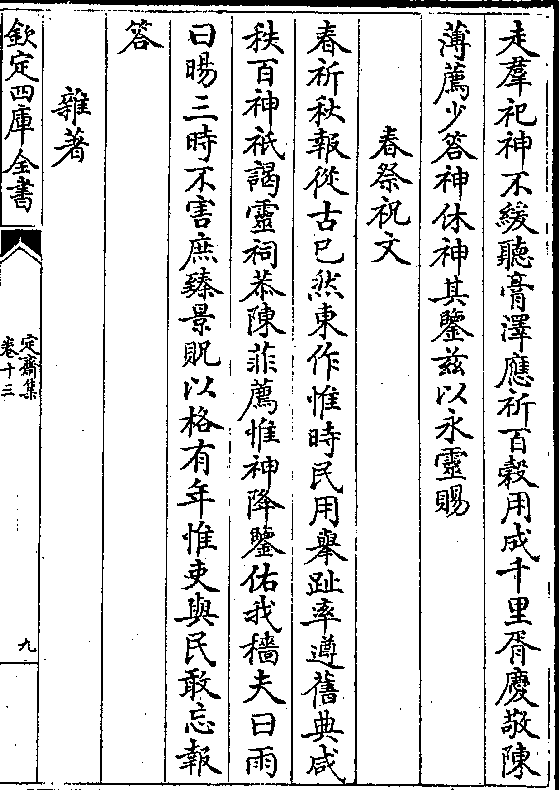 走羣祀神不緩聽膏澤應祈百穀用成千里胥慶敬陳
薄薦少答神休神其鑒兹以永靈賜
春祭祝文
春祈秋報從古已然東作惟時民用舉趾率遵舊典咸
秩百神祇謁靈祠恭陳菲薦惟神降鑒佑我穡夫曰雨
曰暘三時不害庶臻景貺以格有年惟吏與民敢忘報
答
雜著
欽定四庫全書
定齋集
卷十三
九